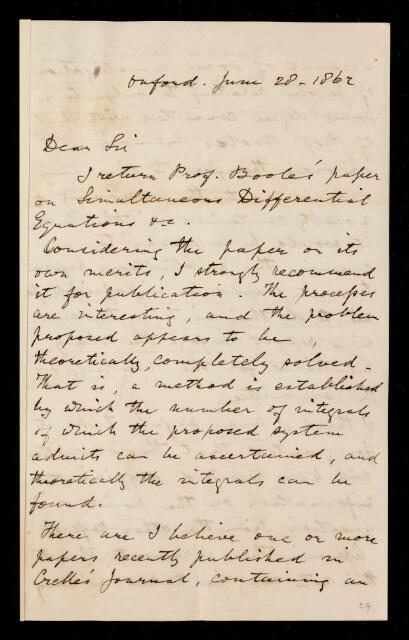 Oxford. June 28 - 1862
Dear Sir
I return Prof. Boole's paper
on Simultaneous Differential
Equations &c.
Considering the paper on its
own merits, I strongly recommend
it for publication. The processes
are interesting, and the problem
proposed appears to be,
theoretically, completely solved -
That is, a method is established
by which the number of integrals
of which the proposed system
admits can be ascertained, and
theoretically the integrals can be
found.
There are I believe one or more
papers recently published in
Crelle's Journal, containing an
29